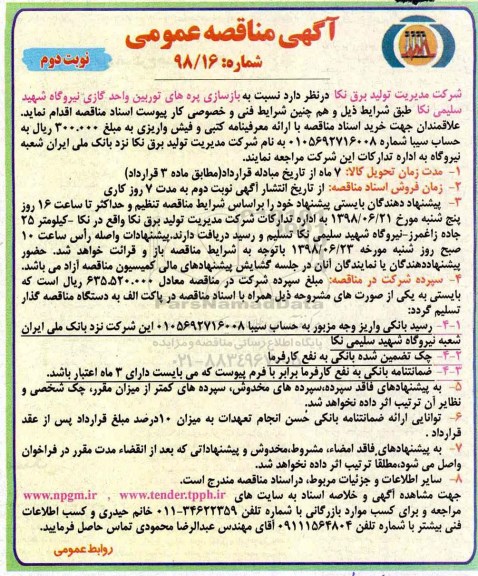 آگهی مناقصه عمومی
شماره: ۹۸/۱۶
نوبت دوم
شرکت مدیریت تولید برق نکا درنظر دارد نسبت به بازسازی پره های توربین واحد گازی نیروگاه شهید
سلیمی نکا طبق شرایط ذیل و هم چنین شرایط فنی و خصوصی کار پیوست اسناد مناقصه اقدام نماید.
علاقمندان جهت خرید اسناد مناقصه با ارائه معرفینامه کتبی و فیش واریزی به مبلغ ۳۰۰.۰۰۰ ریال به
حساب سیبا شماره ۰۱۰۵۶۹۲۷۱۶۰۰۸ به نام شرکت مدیریت تولید برق نکا نزد بانک ملی ایران شعبه
نیروگاه به اداره تدارکات این شرکت مراجعه نمایند.
۱- مدت زمان تحویل کالا: ۷ ماه از تاریخ مبادله قرارداد(مطابق ماده ۳ قرارداد)
۲- زمان فروش اسناد مناقصه: از تاریخ انتشار آگهی نوبت دوم به مدت ۷ روز کاری
۳- پیشنهاد دهندگان بایستی پیشنهاد خود را براساس شرایط مناقصه تنظیم و حداکثر تا ساعت ۱۶ روز
پنج شنبه مورخ ۱۳۹۸/۰۶/۲۱ به اداره تدارکات شرکت مدیریت تولید برق نکا واقع در نکا -کیلومتر ۲۵
جاده زاغمرز-نیروگاه شهید سلیمی نکا تسلیم و رسید دریافت دارند.پیشنهادات واصله رأس ساعت ۱۰
صبح روز شنبه مورخه ۱۳۹۸/۰۶/۲۳ باتوجه به شرایط مناقصه باز و قرائت خواهد شد. حضور
پیشنهاددهندگان یا نمایندگان آنان در جلسه گشایش پیشنهادهای مالی کمیسیون مناقصه آزاد می باشد.
۴- سپرده شرکت در مناقصه: مبلغ سپرده شرکت در مناقصه معادل ۶۳۵.۵۲۰.۰۰۰ ریال است که
بایستی به یکی از صورت های مشروحه ذیل همراه با اسناد مناقصه در پاکت الف به دستگاه مناقصه گذار
تسلیم گردد:
۴-۱- رسید بانکی واریز وجه مزبور به حساب سیبا ۰۱۰۵۶۹۲۷۱۶۰۰۸ این شرکت نزد بانک ملی ایران
شعبه نیروگاه شهید سلیمی نکا
۴-۲- چک تضمین شده بانکی به نفع کارفرما
۴-۳- ضمانتنامه بانکی به نفع کارفرما برابر با فرم پیوست که می بایست دارای ۳ ماه اعتبار باشد.
۵- به پیشنهادهای فاقد سپرده،سپرده های مخدوش، سپرده های کمتر از میزان مقرر، چک شخصی و
نظایر آن ترتیب اثر داده نخواهد شد.
۶- توانایی ارائه ضمانتنامه بانکی حسن انجام تعهدات به میزان ۱۰درصد مبلغ قرارداد پس از عقد
قرارداد .
۷- به پیشنهادهای فاقد امضاء، مشروط،مخدوش و پیشنهاداتی که بعد از انقضاء مدت مقرر در فراخوان
واصل می شود،مطلقا ترتیب اثر داده نخواهد شد.
۸- سایر اطلاعات و جزئیات مربوط، دراسناد مناقصه مندرج است.
جهت مشاهده آگهی و خلاصه اسناد به سایت های www.tender.tpph.ir , www.npgm.ir
مراجعه و برای کسب موارد بازرگانی با شماره تلفن ۳۴۶۲۲۳۵۹-۰۱۱ خانم حیدری و کسب اطلاعات
فنی بیشتر با شماره تلفن ۰۹۱۱۱۵۶۴۸۰۴ آقای مهندس عبدالرضا محمودی تماس حاصل فرمایید.
روابط عمومی